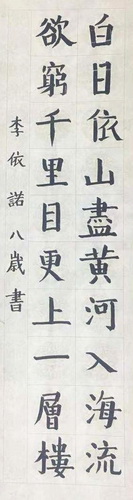 白日依山盡黃河入海流
欲窮千里目更上一層樓
李依諾八歲書